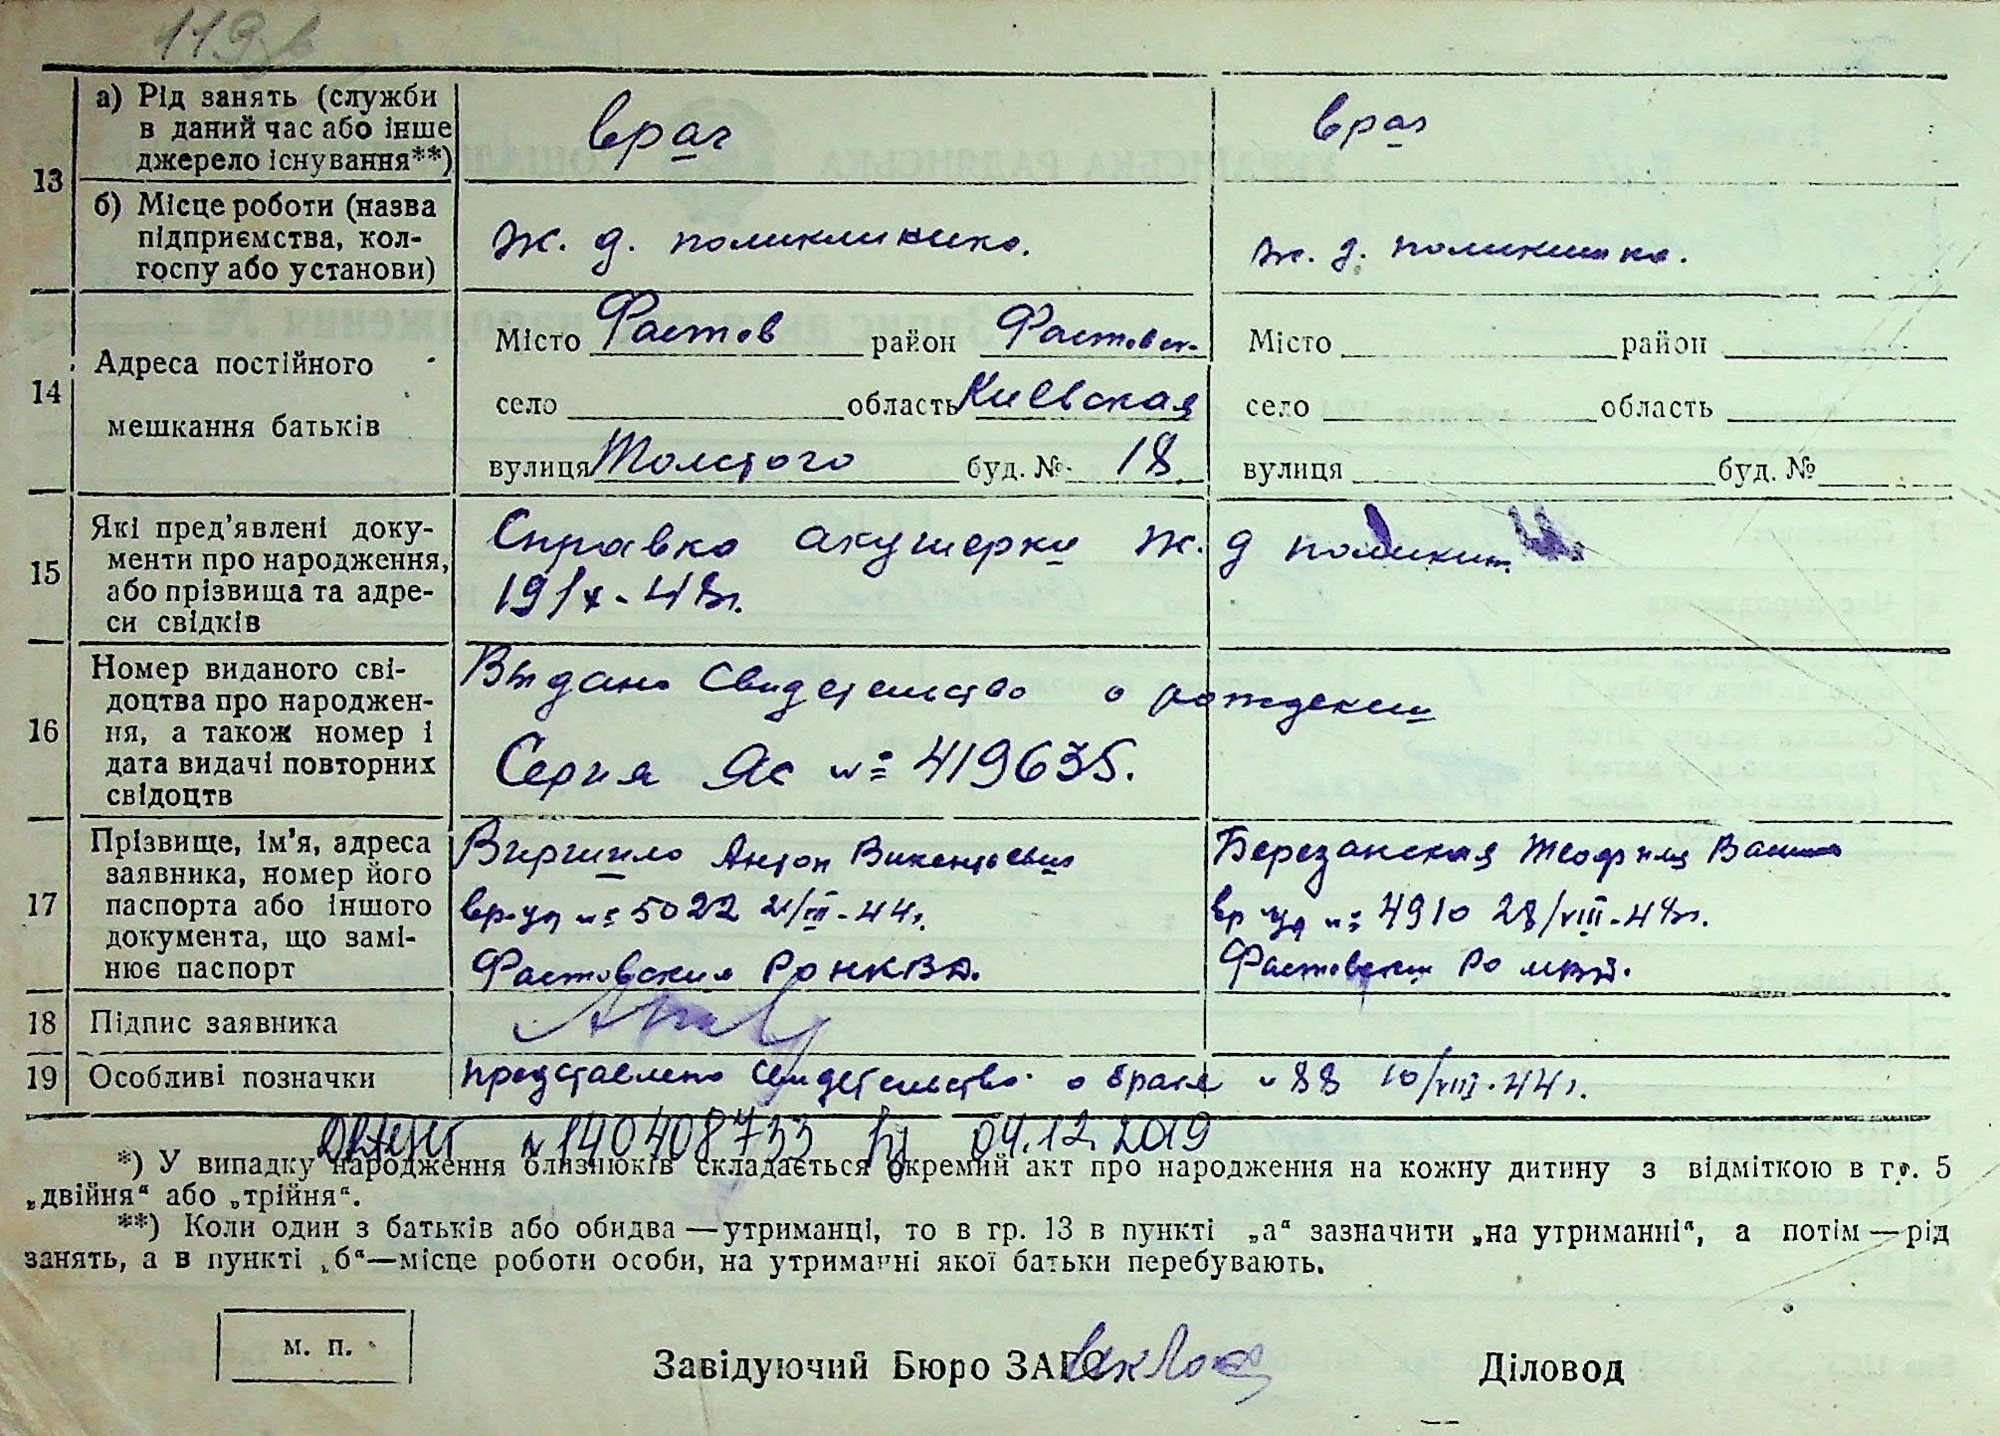 119
13
а) Рід занять (служби в даний час або інше джерело існування**)
врач
врач
б) Місце роботи (назва підприємства, колгоспу або установи)
ж. д. поликлиника.
ж. д. поликлиника.
14
Адреса постійного мешкання батьків
Місто Фастов район Фастовск.
село область Киевская
вулиця Толстого буд. № 18
Місто район
село область
вулиця буд. №
15
Які пред'явлені доку-
менти про народження,
або прізвища та адре-
си свідків
Справка акушерки ж. д поликлин.
48г.
16
Номер виданого сві-
доцтва про народжен-
ня, а також номер і
дата видачі повторних
свідоцтв
Выдано свидетельство о рождении
Серия ЯС №= 419635.
17
Прізвище, ім'я, адреса
заявника, номер його
паспорта або іншого
документа, що замі-
нює паспорт
Антон Викентьевич
вр-уд №= 5022 21/III-44г.
Фастовским РОНКВД.
Березанская Теофилия
вр уд №= 4910 28/VIII-
Фастовским РО МВД.
18
Підпис заявника
19
Особливі позначки
Представлено свидетельство о браке №88 10/VIII-44г.
№140408733 04.12.2019
*) У випадку народження близнюків складається окремий акт про народження на кожну дитину з відміткою в гр. 5
„двійня“ або „трійня“.
**) Коли один з батьків або обидва — утриманці, то в гр. 13 в пункті „а“ зазначити „на утриманні“, а потім — рід
занять, а в пункті „б“ — місце роботи особи, на утриманні якої батьки перебувають.
м. п.
Завідуючий Бюро ЗАГС
Діловод